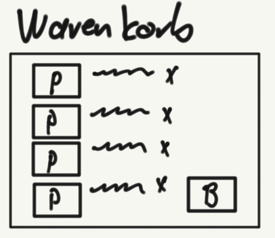 Warenkorb
P x
P x
P x
P x
B